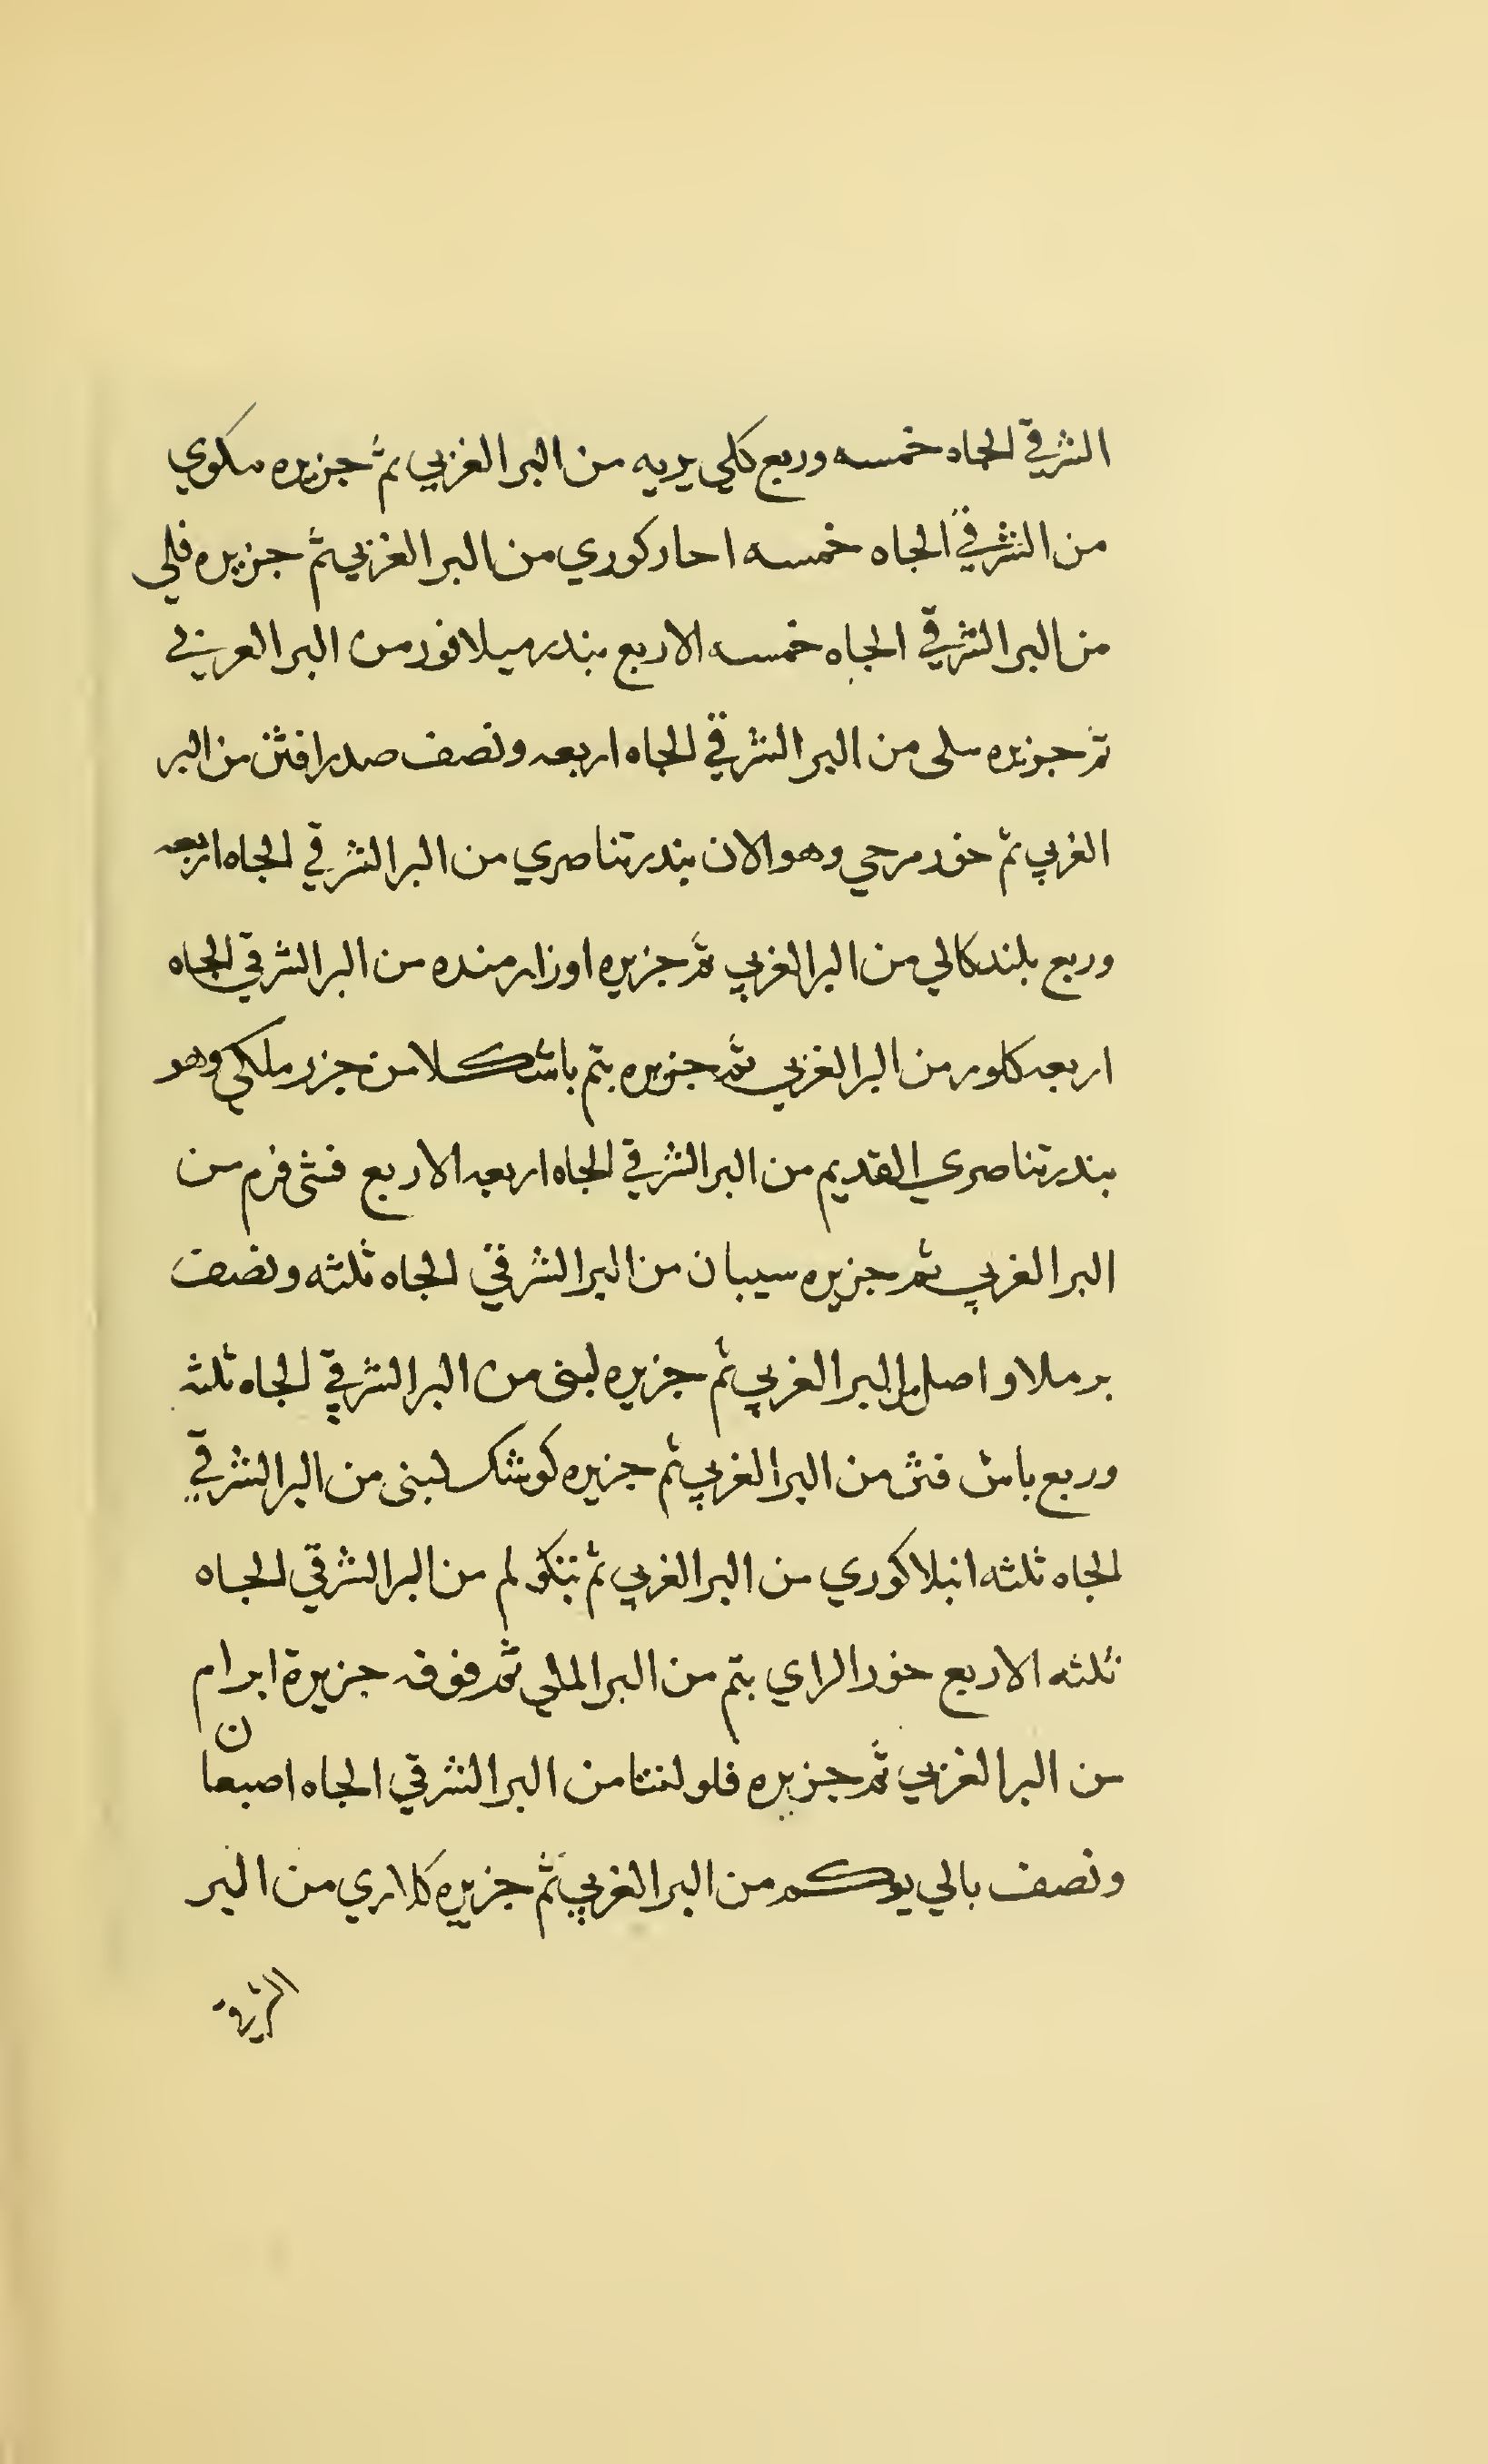 الشرقي الجاه خمسه وربع كلي يريه من البر الغربي ثم جزيره مكوي
من الشرقي الجاه خمسه احاركوري من البر الغربي ثم جزيره فلي
من البر الشرقي الجاه خمسه الاربع بندر ميلافور من البر العربي
ثم جزيره سلى من البر الشرقي الجاه اربعه ونصف صدرافتن من البر
الغربي ثم خور مرحي وهو الان بندر تناصري من البر الشرقي الجاه اربعه
وربع بلندكالي من البر الغربي ثم جزيره اوزارمنده من البر الشرقي الجاه
اربعه كلور من البر الغربي ثم جزيره بتم باشكلا من جزر ملكي وهو
بندر تناصري القديم من البر الشرقي الجاه اربعه الاربع فشى فرم من
البر الغربي ثم جزيره سيبان من البر الشرقي الجاه ثلثه ونصف
برملاو اصل البر الغربي ثم جزيره لبنى من البر الشرقي الجاه ثلثه
وربع باش فتن من البر الغربي ثم جزيره كوشك لبنى من البر الشرقي
الجاه ثلثه انبلاكوري من البر الغربي ثم تنكولم من البر الشرقي الجاه
ثلثه الاربع خور الراي بتم من البر الملي ثم فوفه جزيرة ابرام
من البر الغربي ثم جزيره فلو لنتا من البر الشرقي الجاه اصبعان
ونصف بالي يوكم من البر الغربي ثم جزيره كلاري من البر
الشرقي